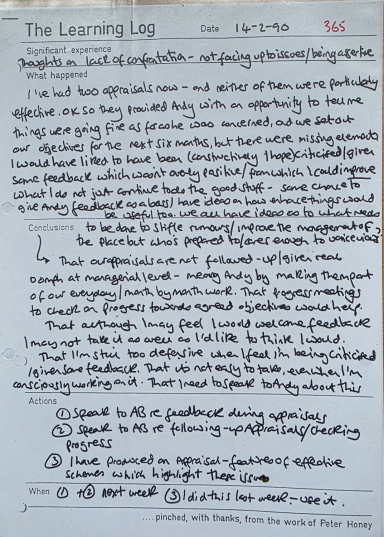 The Learning Log Date 14-2-90 365
Significant experience
Thoughts on lack of confrontation - not facing up to issues/being assertive
What happened
I've had two appraisals now - and neither of them were particularly
effective. OK so they provided Andy with an opportunity to tell me
things were going fine as far as he was concerned, and we set out
our objectives for the next six months, but there were missing elements
I would have liked to have been (constructively I hope) criticised/given
some feedback which wasn't overly positive/from which I could improve
what I do not just continue to do the good stuff - some chance to
give Andy feedback as a boss/have ideas on how things would
be useful too. We all have ideas as to what needs
Conclusions to be done to stifle rumours/improve the management of
the place but who's prepared to/cares enough to voice views?
That our appraisals are not followed-up/given real
oomph at managerial level - meaning Andy by making them part
of our everyday/month by month work. That progress meetings
to check on progress towards agreed objectives would help.
That although I may feel I would welcome feedback
I may not take it as well as I'd like to think I would.
That I'm still too defensive when I feel I'm being criticised
/given some feedback. That it's not easy to take, even when I'm
consciously working on it. That I need to speak to Andy about this
Actions
① Speak to AB re feedback during appraisals
② Speak to AB re following-up Appraisals/checking
progress
③ I have produced an Appraisal - features of effective
schemes which highlight these issues
When ① + ② next week ③ I did this last week - use it.
.... pinched, with thanks, from the work of Peter Honey